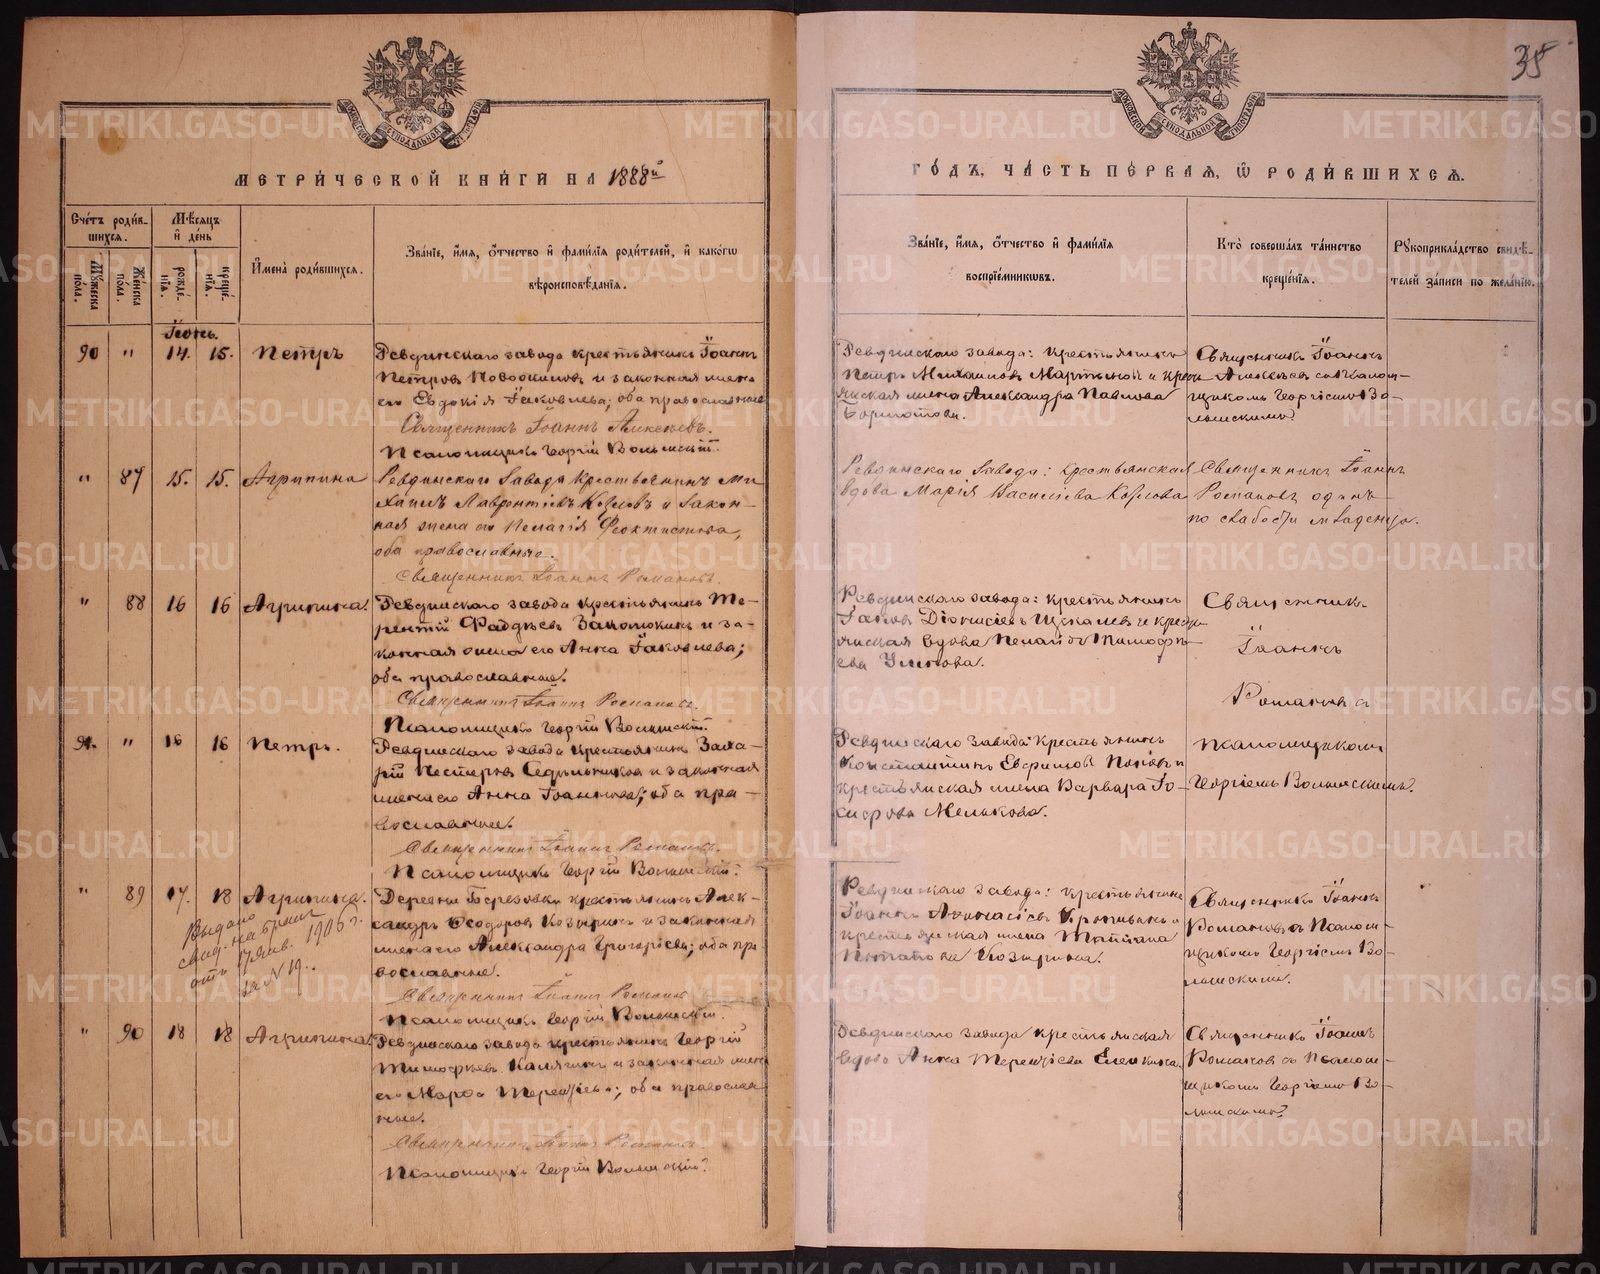 35
МЕТРИ́ЧЕСКОЙ КНИ́ГИ НА 1888й
ГО́ДЪ, ЧА́СТЬ ПЕ́РВАЯ, Ѿ РОДИ́ВШИХСѦ.
Сче́тъ роди́в-
шихсѧ.
Мꙋ́жеска пола.
Же́нска пола.
Мѣ́сѧцъ
и҆ де́нь
рожде́нїѧ.
креще́нїѧ.
И҆мена̀ роди́вшихсѧ.
Зва́нїе, и҆́мѧ, ѻ҆́тчество и҆ фами́лїѧ роди́телей, и҆ како́гѡ
вѣроисповѣ́данїѧ.
Зва́нїе, и҆́мѧ, ѻ҆́тчество и҆ фами́лїѧ
воспрїе́мникѡвъ.
Кто̀ соверша́лъ та́инство
креще́нїѧ.
Рꙋкоприкла́дство свидѣ́-
телей за́писи по жела́нїю.
Іюнь.
90 " 14. 15. Петръ
Ревдинскаго завода крестьянинъ Іоаннъ
Петровъ и законная жена
его Евдокія Іаковлева; оба православные
Священникъ Іоаннъ Алексѣевъ.
Псаломщикъ Георгій Волынскій.
Ревдинскаго завода: крестьянинъ
Петръ Михаиловъ Мартыновъ и крестья
янская жена Александра Павлова
Священникъ Іоаннъ
Алексѣевъ съ псалом-
щикомъ Георгіемъ Во-
лынскимъ
" 87 15. 15. Агрипина
Ревдинскаго Завода Крестьянинъ Ми
хаилъ Лаврентіевъ Козловъ и Закон-
ная жена его Пелагія Феоктистова,
оба православные.
Священникъ Іоаннъ Романовъ.
Ревдинскаго Завода: Крестьянская
вдова Марія Васильева Козлова
Священникъ Іоаннъ
Романовъ одинъ
по слабости младенца.
" 88 16 16 Агрипина.
Ревдинскаго завода крестьянинъ Те-
рентій Фаддѣевъ и за-
конная жена его Анна Іаковлева;
оба православные.
Священникъ Іоаннъ Романовъ.
Псаломщикъ Георгій Волынскій.
Ревдинскаго завода: крестьянинъ
Іаковъ Діонисіевъ и крестья
янская вдова Пелагія Тимофѣ-
ева
Священникъ
Іоаннъ
Романовъ съ
91. " 16 16 Петръ.
Ревдинскаго завода крестьянинъ Заха-
рій Нестеровъ и законная
жена его Анна Іоаннова; оба пра-
вославные.
Священникъ Іоаннъ Романовъ.
Псаломщикъ Георгій Волынскій.
Ревдинскаго завода крестьянинъ
Константинъ и
крестьянская жена Варвара
Мелькова.
псаломщикомъ
Георгіемъ Волынскимъ.
" 89 17. 18 Агрипина.
Выдано
свид. на бракъ
отъ 17 янв. 1906 г.
за № 19.
Деревни Березовки крестьянинъ Алек-
сандръ Ѳеодоровъ Козыринъ и законная
жена его Александра Григорьева; оба пра
вославные.
Священникъ Іоаннъ Романовъ
Псаломщикъ Георгій Волынскій.
Ревдинскаго завода: крестьянинъ
Іоаннъ Аѳанасіевъ и
крестьянская жена Татіана
Козырина.
Священникъ Іоаннъ
Романовъ съ Псалом-
щикомъ Георгіемъ Во-
лынскимъ.
" 90 18 18 Агрипина.
Ревдинскаго завода крестьянинъ Георгій
Тимофѣевъ и законная жена
его Терентьева; оба православ
ные.
Священникъ Іоаннъ Романовъ.
Псаломщикъ Георгій Волынскій
Ревдинскаго завода крестьянская
вдова Анна Терентьева
Священникъ Іоаннъ
Романовъ съ Псалом-
щикомъ Георгіемъ Во-
лынскимъ
METRIKI.GASO-URAL.RU